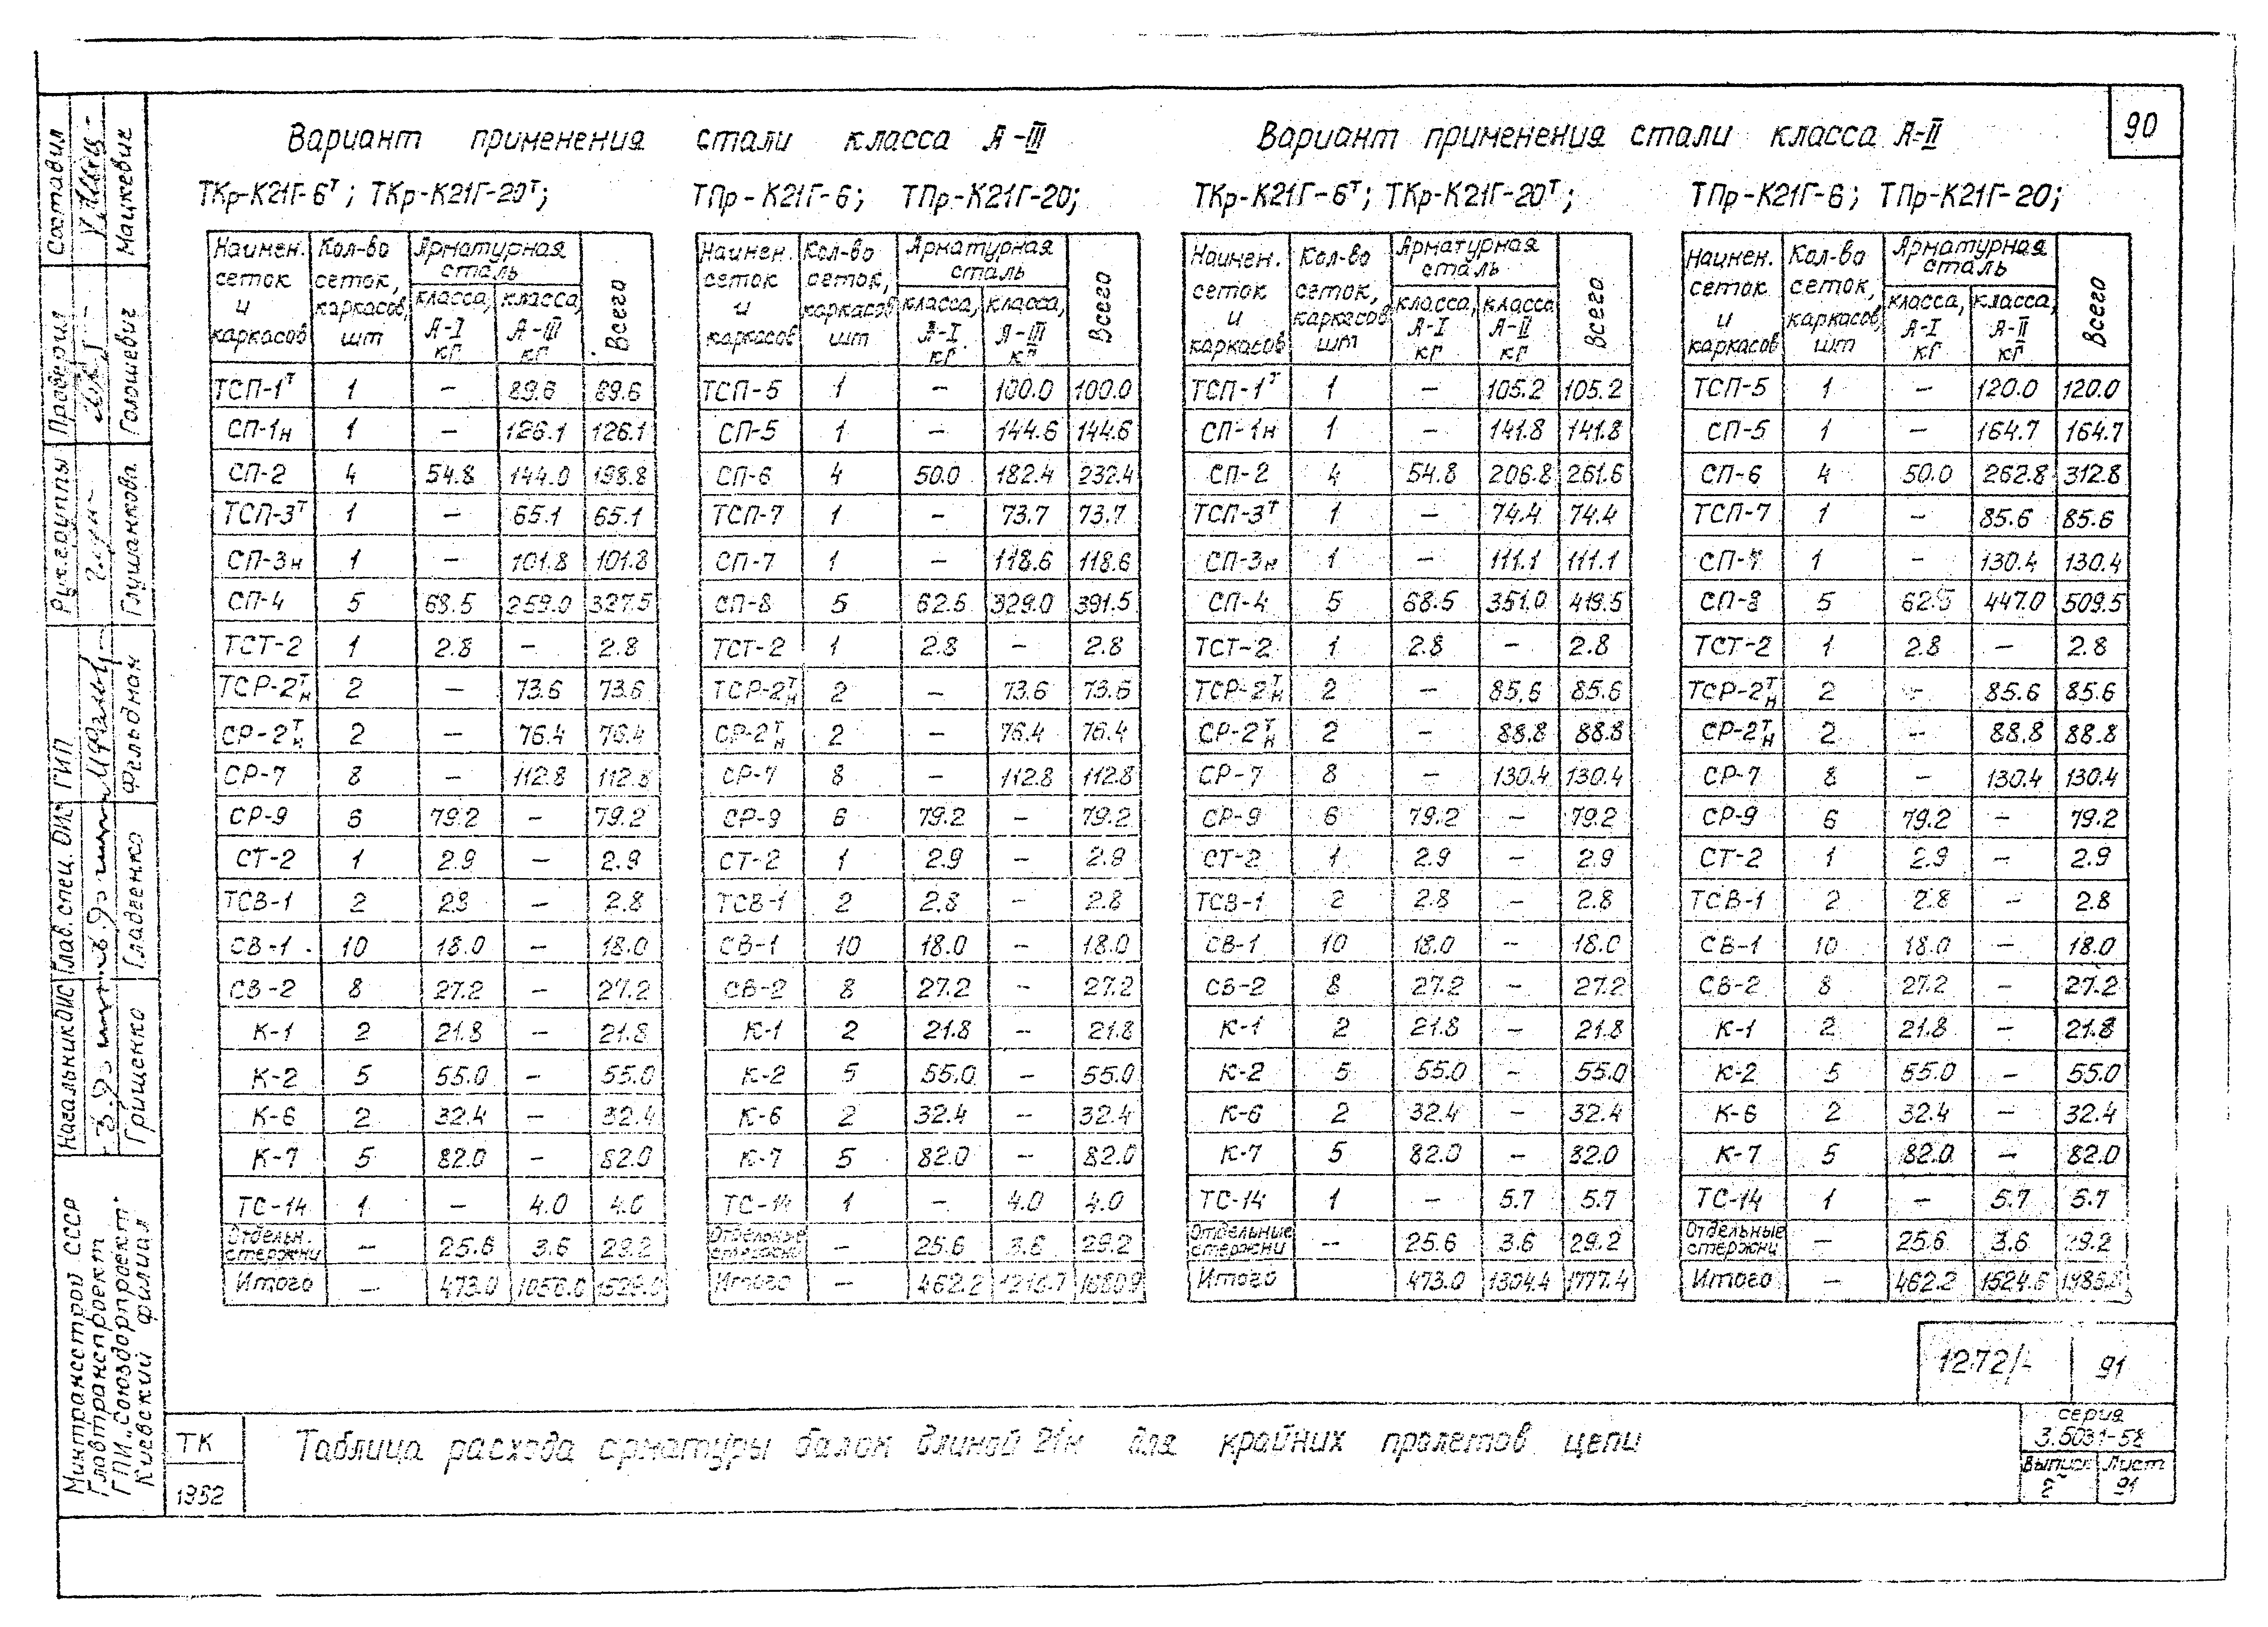 90
Вариант применения стали класса А-III
Вариант применения стали класса А-II
ТКр-К21Г-6ᵀ; ТКр-К21Г-20ᵀ;
Наимен. сеток и каркасов | Кол-во сеток, каркасов, шт | Арматурная сталь класса, А-I кГ | класса, А-III кГ | Всего
ТСП-1ᵀ 1 – 89.6 89.6
СП-1н 1 – 126.1 126.1
СП-2 4 54.8 144.0 198.8
ТСП-3ᵀ 1 – 65.1 65.1
СП-3н 1 – 101.8 101.8
СП-4 5 68.5 259.0 327.5
ТСТ-2 1 2.8 – 2.8
ТСР-2ᵀн 2 – 73.6 73.6
СР-2ᵀн 2 – 76.4 76.4
СР-7 8 – 112.8 112.8
СР-9 6 79.2 – 79.2
СТ-2 1 2.9 – 2.9
ТСВ-1 2 2.8 – 2.8
СВ-1 10 18.0 – 18.0
СВ-2 8 27.2 – 27.2
К-1 2 21.8 – 21.8
К-2 5 55.0 – 55.0
К-6 2 32.4 – 32.4
К-7 5 82.0 – 82.0
ТС-14 1 – 4.0 4.0
Отдельн. стержни – 25.6 3.6 29.2
Итого – 473.0 1056.0 1529.0
ТПр-К21Г-6; ТПр-К21Г-20;
Наимен. сеток и каркасов | Кол-во сеток, каркасов шт | Арматурная сталь класса, А-I кГ | класса, А-III кГ | Всего
ТСП-5 1 – 100.0 100.0
СП-5 1 – 144.6 144.6
СП-6 4 50.0 182.4 232.4
ТСП-7 1 – 73.7 73.7
СП-7 1 – 118.6 118.6
СП-8 5 62.5 329.0 391.5
ТСТ-2 1 2.8 – 2.8
ТСР-2ᵀн 2 – 73.6 73.6
СР-2ᵀн 2 – 76.4 76.4
СР-7 8 – 112.8 112.8
СР-9 6 79.2 – 79.2
СТ-2 1 2.9 – 2.9
ТСВ-1 2 2.8 – 2.8
СВ-1 10 18.0 – 18.0
СВ-2 8 27.2 – 27.2
К-1 2 21.8 – 21.8
К-2 5 55.0 – 55.0
К-6 2 32.4 – 32.4
К-7 5 82.0 – 82.0
ТС-14 1 – 4.0 4.0
Отдельные стержни – 25.6 3.6 29.2
Итого – 462.2 1218.7 1680.9
ТКр-К21Г-6ᵀ; ТКр-К21Г-20ᵀ;
Наимен. сеток и каркасов | Кол-во сеток, каркасов шт | Арматурная сталь класса, А-I кГ | класса А-II кГ | Всего
ТСП-1ᵀ 1 – 105.2 105.2
СП-1н 1 – 141.8 141.8
СП-2 4 54.8 206.8 261.6
ТСП-3ᵀ 1 – 74.4 74.4
СП-3н 1 – 111.1 111.1
СП-4 5 68.5 351.0 419.5
ТСТ-2 1 2.8 – 2.8
ТСР-2ᵀн 2 – 85.6 85.6
СР-2ᵀн 2 – 88.8 88.8
СР-7 8 – 130.4 130.4
СР-9 6 79.2 – 79.2
СТ-2 1 2.9 – 2.9
ТСВ-1 2 2.8 – 2.8
СВ-1 10 18.0 – 18.0
СВ-2 8 27.2 – 27.2
К-1 2 21.8 – 21.8
К-2 5 55.0 – 55.0
К-6 2 32.4 – 32.4
К-7 5 82.0 – 82.0
ТС-14 1 – 5.7 5.7
Отдельные стержни – 25.6 3.6 29.2
Итого 473.0 1304.4 1777.4
ТПр-К21Г-6; ТПр-К21Г-20;
Наимен. сеток и каркасов | Кол-во сеток, каркасов, шт | Арматурная сталь класса, А-I кГ | класса, А-II кГ | Всего
ТСП-5 1 – 120.0 120.0
СП-5 1 – 164.7 164.7
СП-6 4 50.0 262.8 312.8
ТСП-7 1 – 85.6 85.6
СП-7 1 – 130.4 130.4
СП-8 5 62.5 447.0 509.5
ТСТ-2 1 2.8 – 2.8
ТСР-2ᵀн 2 – 85.6 85.6
СР-2ᵀн 2 – 88.8 88.8
СР-7 8 – 130.4 130.4
СР-9 6 79.2 – 79.2
СТ-2 1 2.9 – 2.9
ТСВ-1 2 2.8 – 2.8
СВ-1 10 18.0 – 18.0
СВ-2 8 27.2 – 27.2
К-1 2 21.8 – 21.8
К-2 5 55.0 – 55.0
К-6 2 32.4 – 32.4
К-7 5 82.0 – 82.0
ТС-14 1 – 5.7 5.7
Отдельные стержни – 25.6 3.6 29.2
Итого – 462.2 1524.6
91
ТК
1982
Таблица расхода арматуры балок длиной 21м для крайних пролетов цепи
серия
3.503.1-58
Выпуск
Лист
91
Составил Мацкевич
Проверил Голошевич
Рук. группы Глушанкова
ГИП Фельдман
Глав. спец. ОИС Гладенко
Начальник ОИС Грищенко
Минтрансстрой СССР
Главтранспроект
ГПИ „Союздорпроект"
Киевский филиал